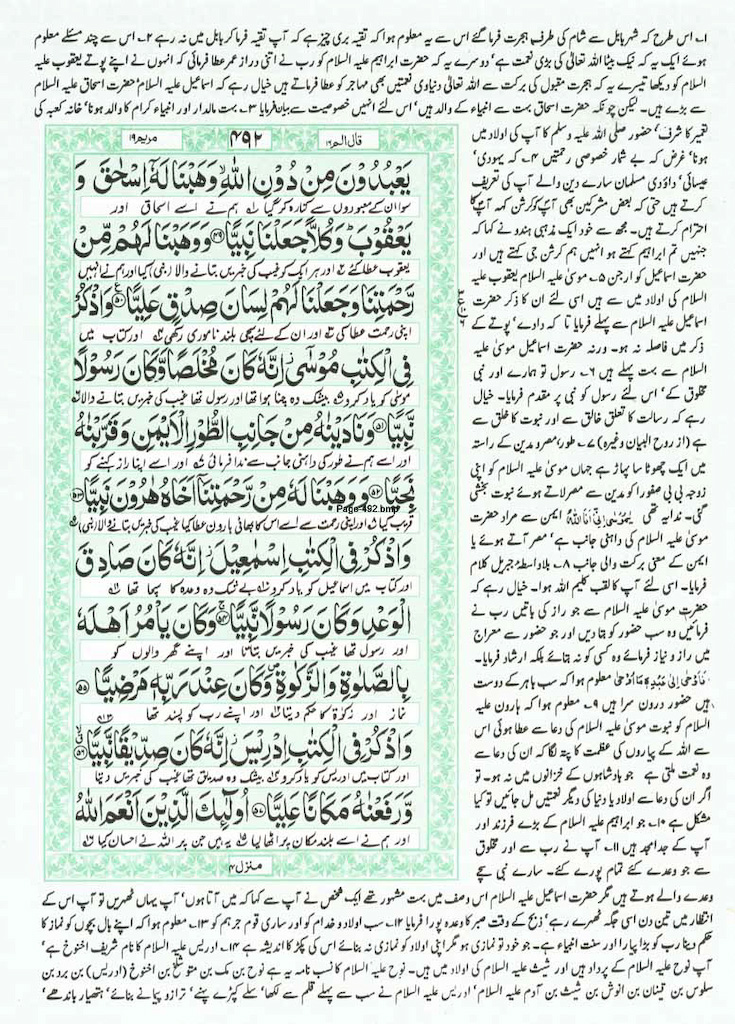 ۱۔ اس طرح کہ شہر بابل سے شام کی طرف ہجرت فرما گئے اس سے یہ معلوم ہوا کہ تقیہ بری چیز ہے کہ آپ تقیہ فرما کر بابل میں نہ رہے ۲۔ اس سے چند مسئلے معلوم
ہوئے ایک یہ کہ نیک بیٹا اللہ تعالیٰ کی بڑی نعمت ہے' دوسرے یہ کہ حضرت ابراہیم علیہ السلام کو رب نے اتنی دراز عمر عطا فرمائی کہ انہوں نے اپنے پوتے یعقوب علیہ
السلام کو دیکھا تیسرے یہ کہ ہجرت مقبول کی برکت سے اللہ تعالیٰ دنیاوی نعمتیں بھی مہاجر کو عطا فرماتے ہیں خیال رہے کہ اسماعیل علیہ السلام' حضرت اسحاق علیہ السلام
سے بڑے ہیں۔ لیکن چونکہ حضرت اسحاق بہت سے انبیاء کے والد ہیں' اس لئے انہیں خصوصیت سے بیان فرمایا ۳۔ بہت مالدار اور انبیاء کرام کا والد ہونا' خانہ کعبہ کی
تعمیر کا شرف' حضور صلی اللہ علیہ وسلم کا آپ کی اولاد میں
ہونا' غرض کہ بے شمار خصوصی رحمتیں ۴۔ کہ یہودی'
عیسائی' داؤدی مسلمان سارے دین والے آپ کی تعریف
کرتے ہیں حتی کہ بعض مشرکین بھی آپ کو کرشن کہہ آپ کا
احترام کرتے ہیں۔ مجھ سے خود ایک مذہبی ہندو نے کہا کہ
جنہیں تم ابراہیم کہتے ہو انہیں ہم کرشن جی کہتے ہیں اور
حضرت اسماعیل کو ارجن ۵۔ موسیٰ علیہ السلام یعقوب علیہ
السلام کی اولاد میں سے ہیں اسی لئے ان کا ذکر حضرت
اسماعیل علیہ السلام سے پہلے فرمایا تا کہ دادے' پوتے کے
ذکر میں فاصلہ نہ ہو۔ ورنہ حضرت اسماعیل علیہ السلام
سے بہت پہلے ہیں ۶۔ رسول تو ہمارے اور نبی
مخلوق کے' اس لئے رسول کو نبی پر مقدم فرمایا۔ خیال
رہے کہ رسالت کا تعلق خالق سے اور نبوت کا خلق سے
ہے (از روح البیان وغیرہ) ۷۔ طور' مصر و مدین کے راستہ
میں ایک چھوٹا سا پہاڑ ہے جہاں موسیٰ علیہ السلام کو اپنی
زوجہ بی بی صفورا کو مدین سے مصر لاتے ہوئے نبوت بخشی
گئی۔ ندا یہ تھی یٰمُوۡسٰۤی اِنِّیۡۤ اَنَا اللّٰہُ ایمن سے مراد حضرت
موسیٰ علیہ السلام کی داہنی جانب ہے' مصر آتے ہوئے یا
ایمن کے معنی برکت والی جانب ۸۔ بلاواسطہ جبریل کلام
فرمایا۔ اسی لئے آپ کا لقب کلیم اللہ ہوا۔ خیال رہے کہ
حضرت موسیٰ علیہ السلام سے جو راز کی باتیں رب نے
فرمائیں وہ سب حضور کو بتا دیں اور جو حضور سے معراج
میں راز و نیاز فرمائے وہ کسی کو نہ بتائے بلکہ ارشاد فرمایا۔
فَاَوۡحٰۤی اِلٰی عَبۡدِہٖ مَاۤ اَوۡحٰی معلوم ہوا کہ سب باہر کے دوست
ہیں حضور درون سرا ہیں ۹۔ معلوم ہوا کہ ہارون علیہ
السلام کو نبوت موسیٰ علیہ السلام کی دعا سے عطا ہوئی اس
سے اللہ کے پیاروں کی عظمت کا پتہ لگا کہ ان کی دعا سے
وہ نعمت ملتی ہے جو بادشاہوں کے خزانوں میں نہ ہو۔ تو
اگر ان کی دعا سے اولاد یا دنیا کی دیگر نعمتیں مل جائیں تو کیا
مشکل ہے ۱۰۔ جو ابراہیم علیہ السلام کے بڑے فرزند اور
آپ کے جد امجد ہیں ۱۱۔ آپ نے رب سے اور مخلوق
سے جو وعدے کئے تمام پورے کئے۔ سارے نبی سچے
قال الم ۱۶
۴۹۲
مریم ۱۹
يَعْبُدُوْنَ مِنْ دُوْنِ اللّٰهِ ۙ وَهَبْنَا لَهٗۤ اِسْحٰقَ وَ
سوا ان کے معبودوں سے کنارہ کر گیا ۱؎ ہم نے اسے اسحاق اور
يَعْقُوْبَ ؕ وَكُلًّا جَعَلْنَا نَبِيًّا ﴿۴۹﴾ وَوَهَبْنَا لَهُمْ مِّنْ
یعقوب عطا کئے ۲؎ اور ہر ایک کو غیب کی خبریں بتانے والا (نبی) کیا اور ہم نے انہیں
رَّحْمَتِنَا وَجَعَلْنَا لَهُمْ لِسَانَ صِدْقٍ عَلِيًّا ﴿۵۰﴾ وَاذْكُرْ
اپنی رحمت عطا کی ۳؎ اور ان کے لئے سچی بلند ناموری رکھی ۴؎ اور کتاب میں
فِي الْكِتٰبِ مُوْسٰۤى ؗ اِنَّهٗ كَانَ مُخْلَصًا وَّكَانَ رَسُوْلًا
موسیٰ کو یاد کرو ۵؎ بیشک وہ چنا ہوا تھا اور رسول تھا غیب کی خبریں بتانے والا ۶؎
نَّبِيًّا ﴿۵۱﴾ وَنَادَيْنٰهُ مِنْ جَانِبِ الطُّوْرِ الْاَيْمَنِ وَقَرَّبْنٰهُ
اور اسے ہم نے طور کی داہنی جانب سے ندا فرمائی ۷؎ اور اسے اپنا راز کہنے کو
نَجِيًّا ﴿۵۲﴾ وَوَهَبْنَا لَهٗ مِنْ رَّحْمَتِنَاۤ اَخَاهُ هٰرُوْنَ نَبِيًّا ﴿۵۳﴾
Page-492.bmp
قریب کیا ۸؎ اور اپنی رحمت سے اسے اس کا بھائی ہارون عطا کیا غیب کی خبریں بتانے والا (نبی) ۹؎
وَاذْكُرْ فِي الْكِتٰبِ اِسْمٰعِيْلَ ؗ اِنَّهٗ كَانَ صَادِقَ
اور کتاب میں اسماعیل کو یاد کرو ۱۰؎ بے شک وہ وعدہ کا سچا تھا ۱۱؎
الْوَعْدِ وَكَانَ رَسُوْلًا نَّبِيًّا ﴿۵۴﴾ وَكَانَ يَاْمُرُ اَهْلَهٗ
اور رسول تھا غیب کی خبریں بتاتا اور اپنے گھر والوں کو
بِالصَّلٰوةِ وَالزَّكٰوةِ ۪ وَكَانَ عِنْدَ رَبِّهٖ مَرْضِيًّا ﴿۵۵﴾
نماز اور زکوٰۃ کا حکم دیتا ۱۲؎ اور اپنے رب کو پسند تھا ۱۳؎
وَاذْكُرْ فِي الْكِتٰبِ اِدْرِيْسَ ؗ اِنَّهٗ كَانَ صِدِّيْقًا نَّبِيًّا ﴿۵۶﴾
اور کتاب میں ادریس کو یاد کرو ۱۴؎ بیشک وہ صدیق تھا غیب کی خبریں دیتا
وَّرَفَعْنٰهُ مَكَانًا عَلِيًّا ﴿۵۷﴾ اُولٰٓئِكَ الَّذِيْنَ اَنْعَمَ اللّٰهُ
اور ہم نے اسے بلند مکان پر اٹھا لیا ۱۵؎ یہ ہیں جن پر اللہ نے احسان کیا ۱۶؎
منزل ۴
وعدے والے ہوتے ہیں مگر حضرت اسماعیل علیہ السلام اس وصف میں بہت مشہور تھے ایک شخص نے آپ سے کہا کہ میں آتا ہوں' آپ یہاں ٹھہریں تو آپ اس کے
انتظار میں تین دن اسی جگہ ٹھہرے رہے' ذبح کے وقت صبر کا وعدہ پورا فرمایا ۱۲۔ سب اولاد و خدام کو اور ساری قوم جرہم کو ۱۳۔ معلوم ہوا کہ اپنے بال بچوں کو نماز کا
حکم دینا رب کو بڑا پیارا اور سنت انبیاء ہے۔ جو خود تو نمازی ہو مگر اپنی اولاد کو نمازی نہ بنائے اس کی پکڑ کا اندیشہ ہے ۱۴۔ ادریس علیہ السلام کا نام شریف اخنوخ ہے'
آپ نوح علیہ السلام کے پردادا ہیں اور شیث علیہ السلام کی اولاد میں ہیں۔ نوح علیہ السلام کا نسب نامہ یہ ہے نوح بن مک بن متوشلخ بن اخنوخ (ادریس) بن برد بن
سلوس بن قینان بن انوش بن شیث بن آدم علیہ السلام' ادریس علیہ السلام نے سب سے پہلے قلم سے لکھا' سلے کپڑے پہنے' ترازو پیمانے بنائے' ہتھیار باندھے'